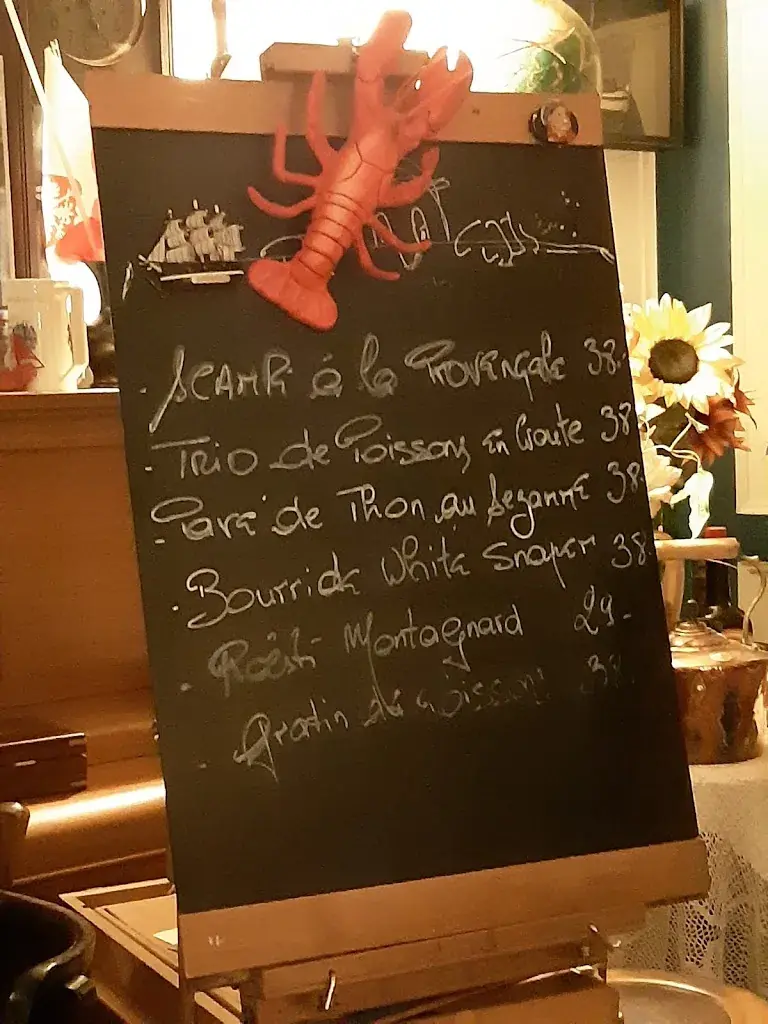 - SCAMPI à la Provençale 38.-
- Trio de Poissons en Croute 38
- Pavé de Thon au Sezamme 38.
- Bourride White Snaper 38
- Roësti Montagnard 29.-
- Gratin de Poissons 38.